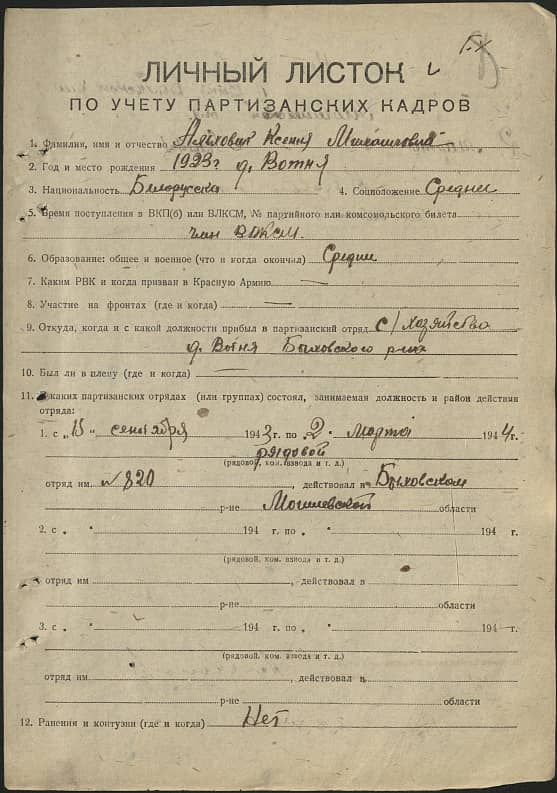 ЛИЧНЫЙ ЛИСТОК
ПО УЧЕТУ ПАРТИЗАНСКИХ КАДРОВ
1. Фамилия, имя и отчество Ксения
2. Год и место рождения 1923 г д. Вотня
3. Национальность Белорусска 4. Соцположение Средний
5. Время поступления в ВКП(б) или ВЛКСМ, № партийного или комсомольского билета
член ВЛКСМ
6. Образование: общее и военное (что и когда окончил) Средние
7. Каким РВК и когда призван в Красную Армию —
8. Участие на фронтах (где и когда) —
9. Откуда, когда и с какой должности прибыл в партизанский отряд с/хозяйство
д. Вотня Быховского р-на
10. Был ли в плену (где и когда) —
11. В каких партизанских отрядах (или группах) состоял, занимаемая должность и район действия
отряда:
1. с „15" сентября 1943 г. по „2" марта 1944 г.
рядовой
(рядовой, ком. взвода и т. д.)
отряд им. № 820, действовал в Быховском
р-не Могилевской области
2. с „ " 194 г. по „ " 194 г.
(рядовой, ком. взвода и т. д.)
отряд им , действовал в
р-не области
3. с „ " 194 г. по „ " 194 г.
(рядовой, ком. взвода и т. д.)
отряд им , действовал в
р-не области
12. Ранения и контузии (где и когда) Нет